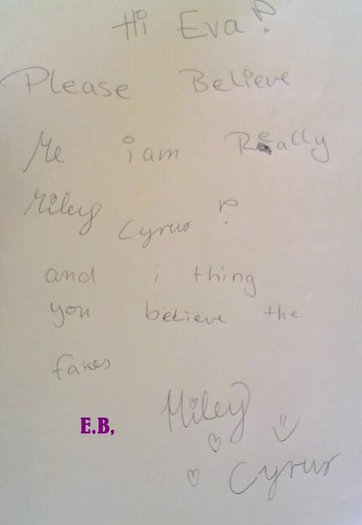 Hi Eva!
Please Believe
Me i am Really
Miley Cyrus!
and i thing
you believe the
fakes
E.B,
Miley
Cyrus